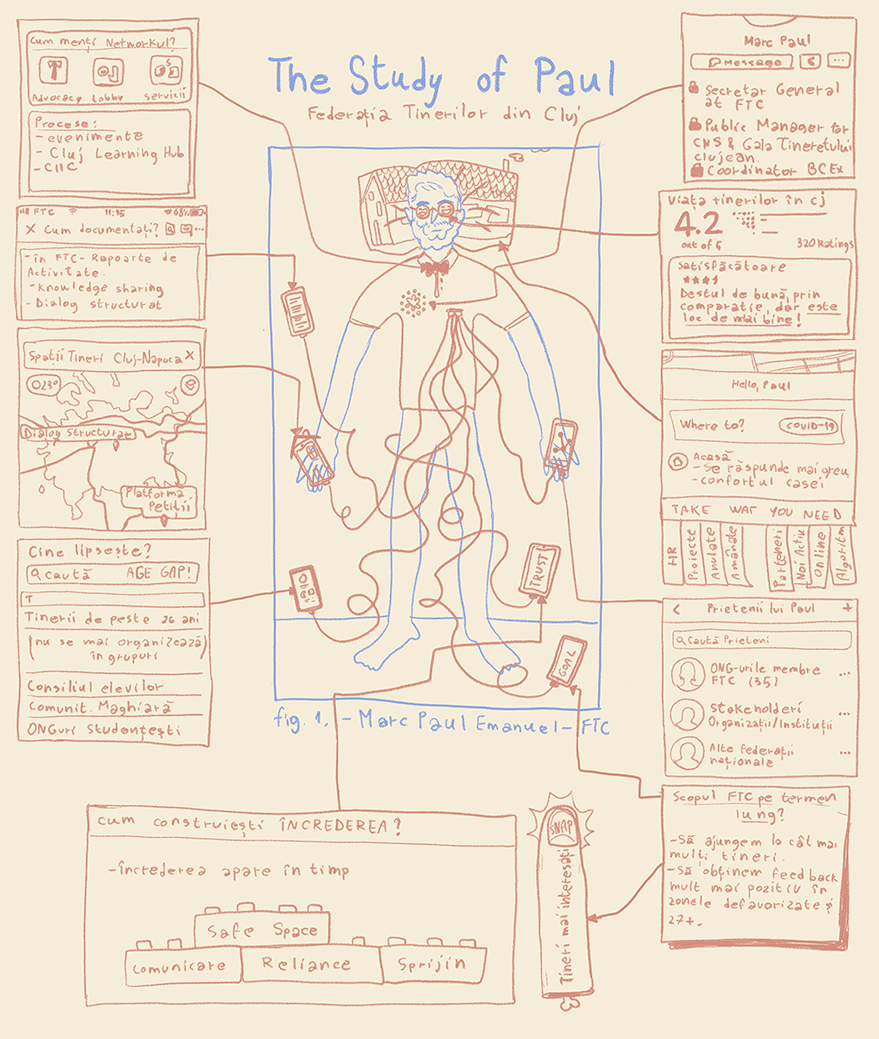 The Study of Paul
Federația Tinerilor din Cluj
Cum menți Networkul?
Advocacy Lobby Servicii
Procese:
- evenimente
- Cluj Learning Hub
- CIIC
FTC 11:35 68%
X Cum documentați?
- în FTC - Rapoarte de
Activitate.
- Knowledge sharing
- Dialog structurat
Spații Tineri Cluj-Napoca X
23°
Dialog Structurat
Platforma
Petiții
Cine lipsește?
caută AGE GAP!
T
Tinerii de peste 26 ani
(nu se mai organizează)
în grupuri
Consiliul elevilor
Comunit. Maghiară
ONGuri Studențești
Marc Paul
Message
Secretar General
at FTC
Public Manager for
CNS & Gala Tineretului
clujean.
Coordinator BCEx
Viața tinerilor în cj
4.2
out of 5
320 Ratings
Satisfăcătoare
Destul de bună, prin
comparație, dar este
loc de mai bine!
Hello, Paul
Where to? COVID-19
Acasă
- Se răspunde mai greu
- confortul casei
TAKE WAT YOU NEED
HR
Proiecte
Anulate
Amânate
Parteneri
Noi Activ
Online
Algoritm
< Prietenii lui Paul +
Caută Prieteni
ONG-urile membre
FTC (35)
Stakeholderi
Organizații/Instituții
Alte federații
naționale
TRUST
GOAL
fig. 1. - Marc Paul Emanuel - FTC
Cum construiești ÎNCREDEREA?
- încrederea apare în timp
Safe Space
Comunicare Reliance Sprijin
SNAP
Tineri mai interesați
Scopul FTC pe termen
lung?
- Să ajungem la cât mai
mulți tineri.
- Să obținem feedback
mult mai pozitiv în
zonele defavorizate și
27+.